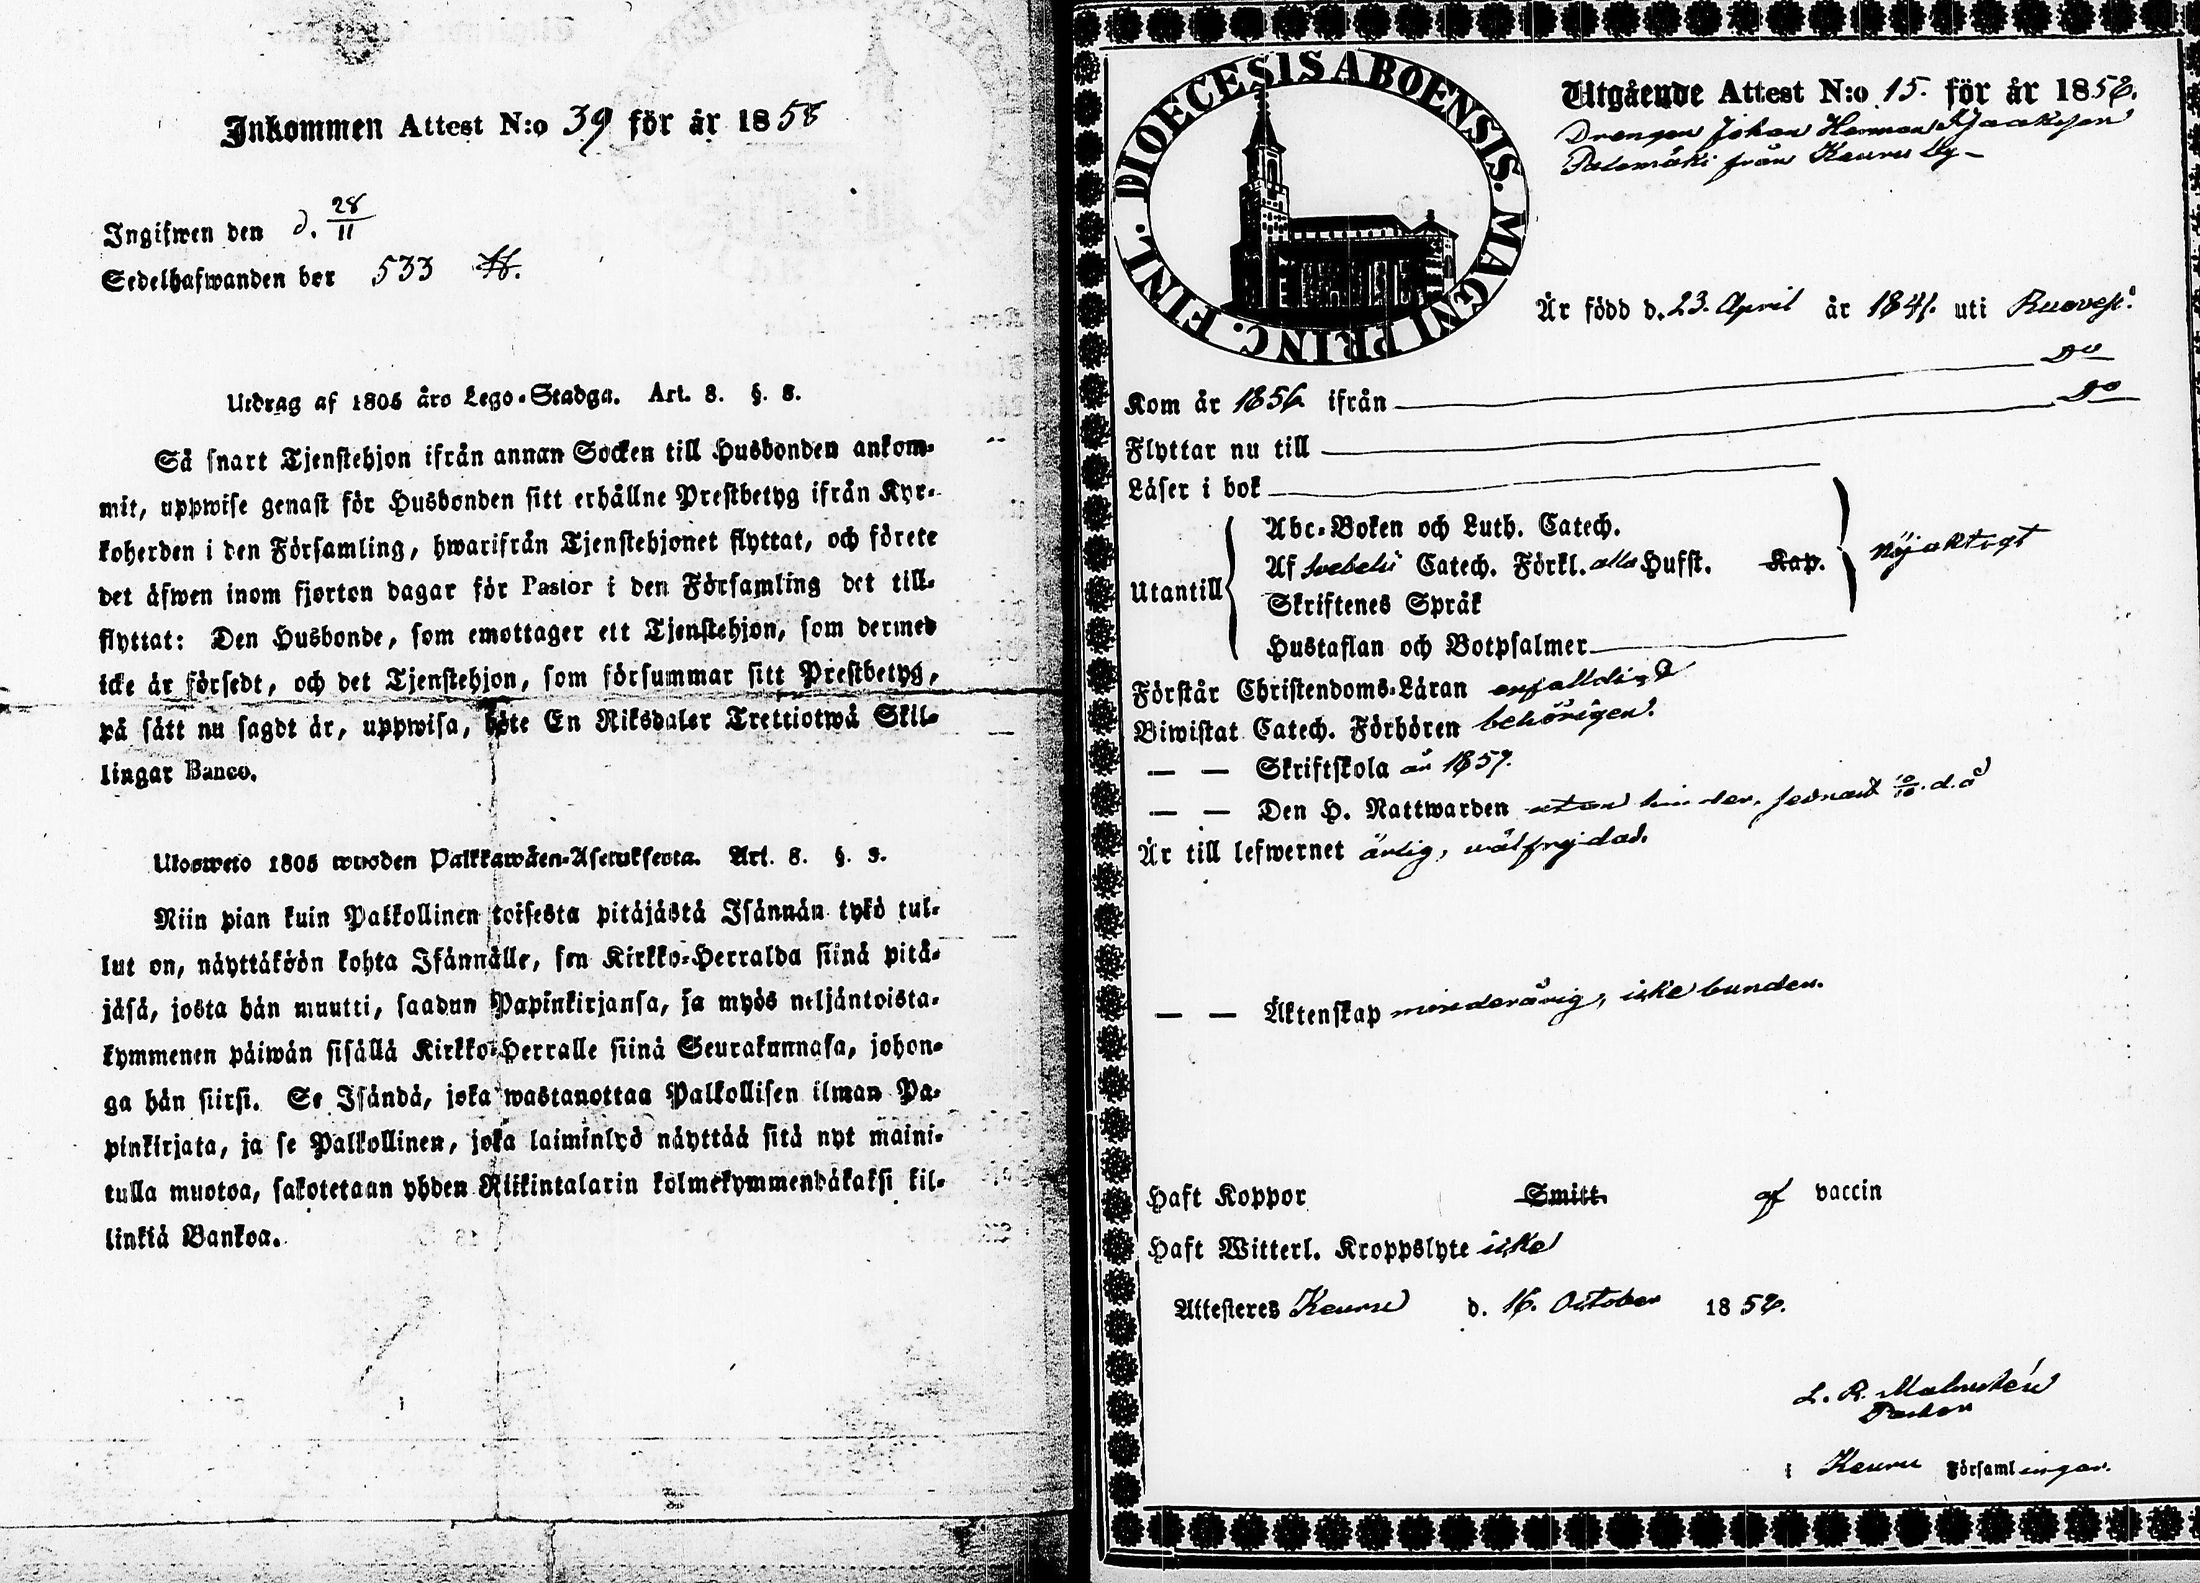 Inkommen Attest N:o 39 för år 1858
Ingifwen den d. 28/11
Sedelhafwanden bor 533
Utdrag af 1805 års Lego-Stadga. Art. 8. §. 8.
Så snart Tjenstehjon ifrån annan Socken till Husbonden ankom-
mit, uppwise genast för Husbonden sitt erhållne Prestbetyg ifrån Kyr-
koherden i den Församling, hwarifrån Tjenstehjonet flyttat, och förete
det äfwen inom fjorton dagar för Pastor i den Församling det till-
flyttat: Den Husbonde, som emottager ett Tjenstehjon, som dermed
icke är försedt, och det Tjenstehjon, som försummar sitt Prestbetyg,
på sätt nu sagdt är, uppwisa, böte En Riksdaler Trettiotwå Skil-
lingar Banco.
Ulosweto 1805 wuoden Palkkawäen-Asetuksesta. Art. 8. §. 8.
Niin pian kuin Palkollinen toisesta pitäjästä Isännän tykö tul-
lut on, näyttäköön kohta Isännälle, sen Kirkko-Herralda siinä pitä-
jäsä, josta hän muutti, saadun Papinkirjansa, ja myös neljäntoista-
kymmenen päiwän sisällä Kirkko-Herralle siinä Seurakunnasa, johon-
ga hän siirsi. Se Isändä, joka wastanottaa Palkollisen ilman Pa-
pinkirjata, ja se Palkollinen, joka laiminlyö näyttää sitä nyt maini-
tulla muotoa, sakotetaan yhden Riikintalarin kolmekymmendäkaksi kil-
linkiä Bankoa.
DIOECESIS ABOENSIS. MAGNI PRINC. FINL.
Utgående Attest N:o 15. för år 1858.
Drengen Johan Herman Jaaksson
Palomäki från Keuru By
Är född d. 23. April år 1841. uti Ruovesi.
Kom år 1856 ifrån Do
Flyttar nu till Do
Läser i bok
Abc-Boken och Luth. Catech.
Utantill Af Svebelii Catech. Förkl. alla Hufst. Kap. nöjaktigt
Skriftenes Språk
Hustaflan och Botpsalmer
Förstår Christendoms-Läran enfalldigt
Biwistat Catech. Förhören behörigen.
— — Skriftskola år 1857.
— — Den H. Nattwarden utan hinder, senast 10/10 d.å
Är till lefwernet ärlig, välfrejdad.
— — Äktenskap minderårig, icke bunden.
Haft Koppor Smitt. af vaccin
Haft Witterl. Kroppslyte icke
Attesteres Keuru d. 16. October 1858.
L. R. Malmstén
Pastor
i Keuru Församlingar.